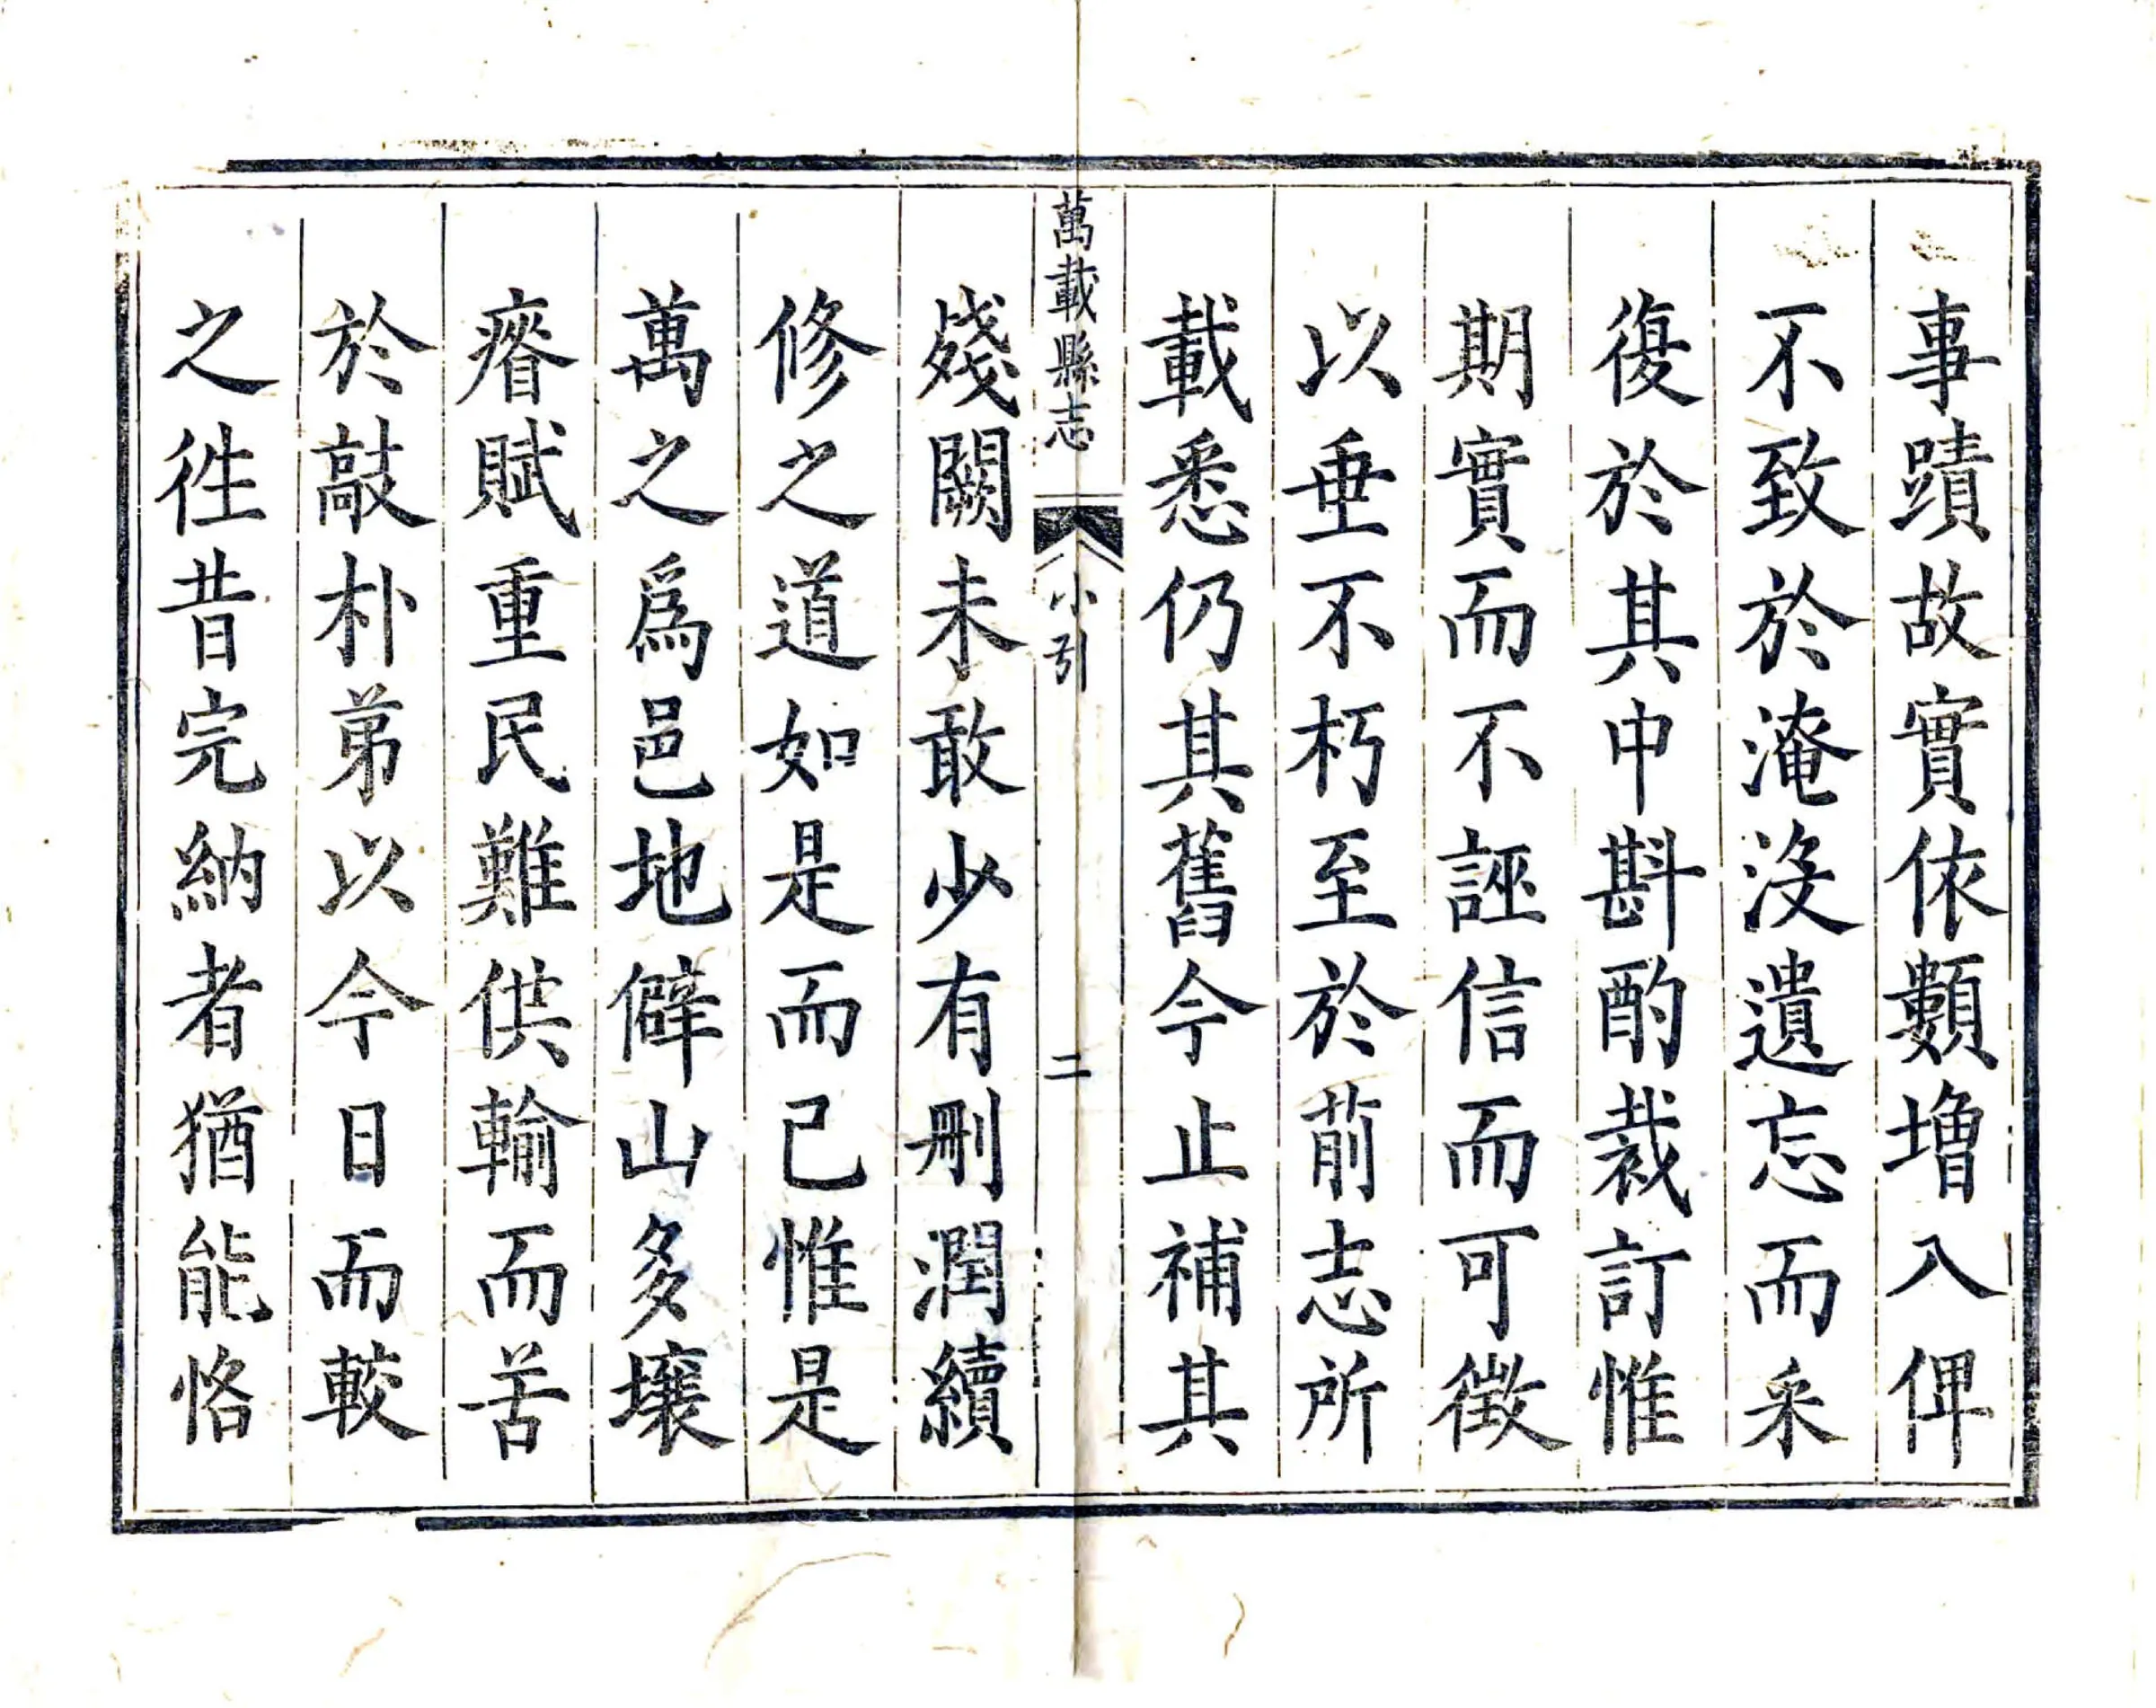 事蹟故實依類增入俾
不致於淹没遺忘而采
復於其中斟酌裁訂惟
期實而不誣信而可徵
以垂不朽至於前志所
載悉仍其舊今止補其
萬載縣志
小引
二
殘闕未敢少有刪潤續
修之道如是而已惟是
萬之爲邑地僻山多壤
瘠賦重民難供輸而苦
於敲朴弟以今日而較
之徃昔完納者猶能恪